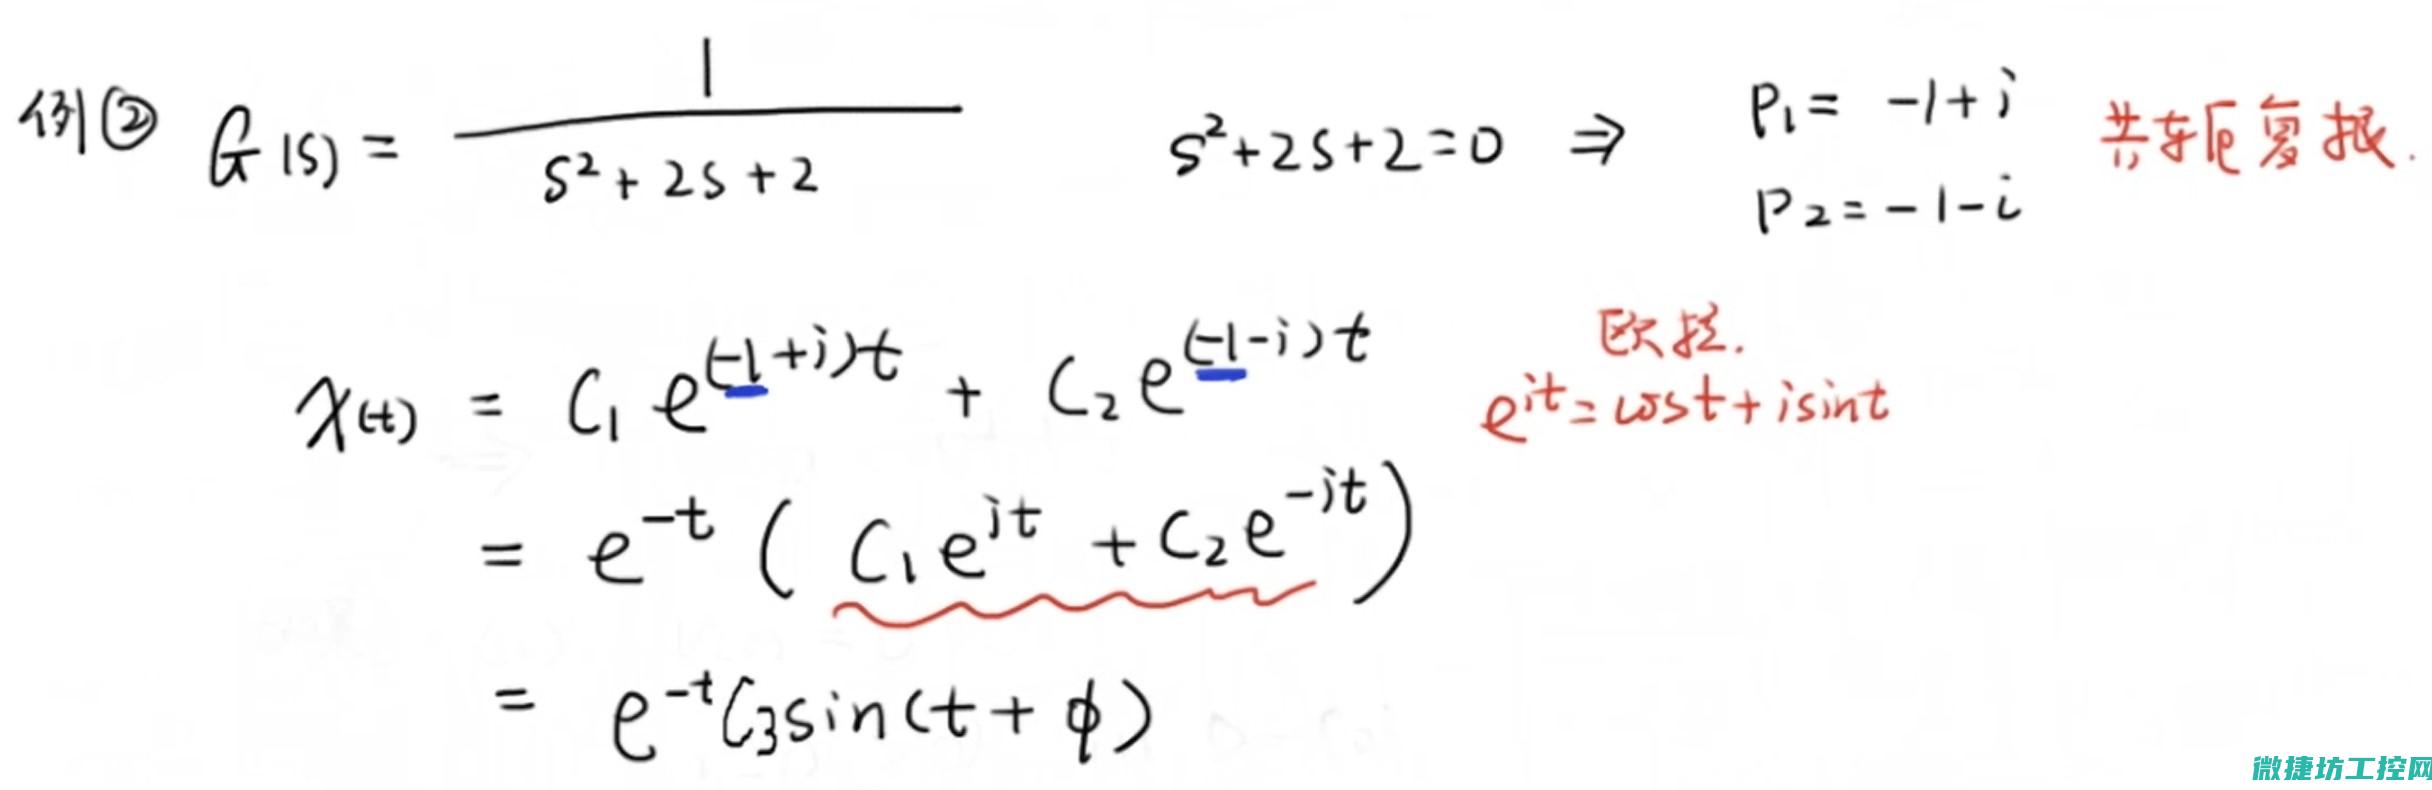 例② G(s) = 1 / (s² + 2s + 2) s² + 2s + 2 = 0 ⇒ P₁ = -1 + i 共轭复根.
P₂ = -1 - i
欧拉.
x(t) = C₁ e^{(-1+i)t} + C₂ e^{(-1-i)t} e^{it} = cost + isint
= e^{-t} ( C₁ e^{it} + C₂ e^{-it} )
= e^{-t} C₃ sin(t + φ)
微捷坊工控网